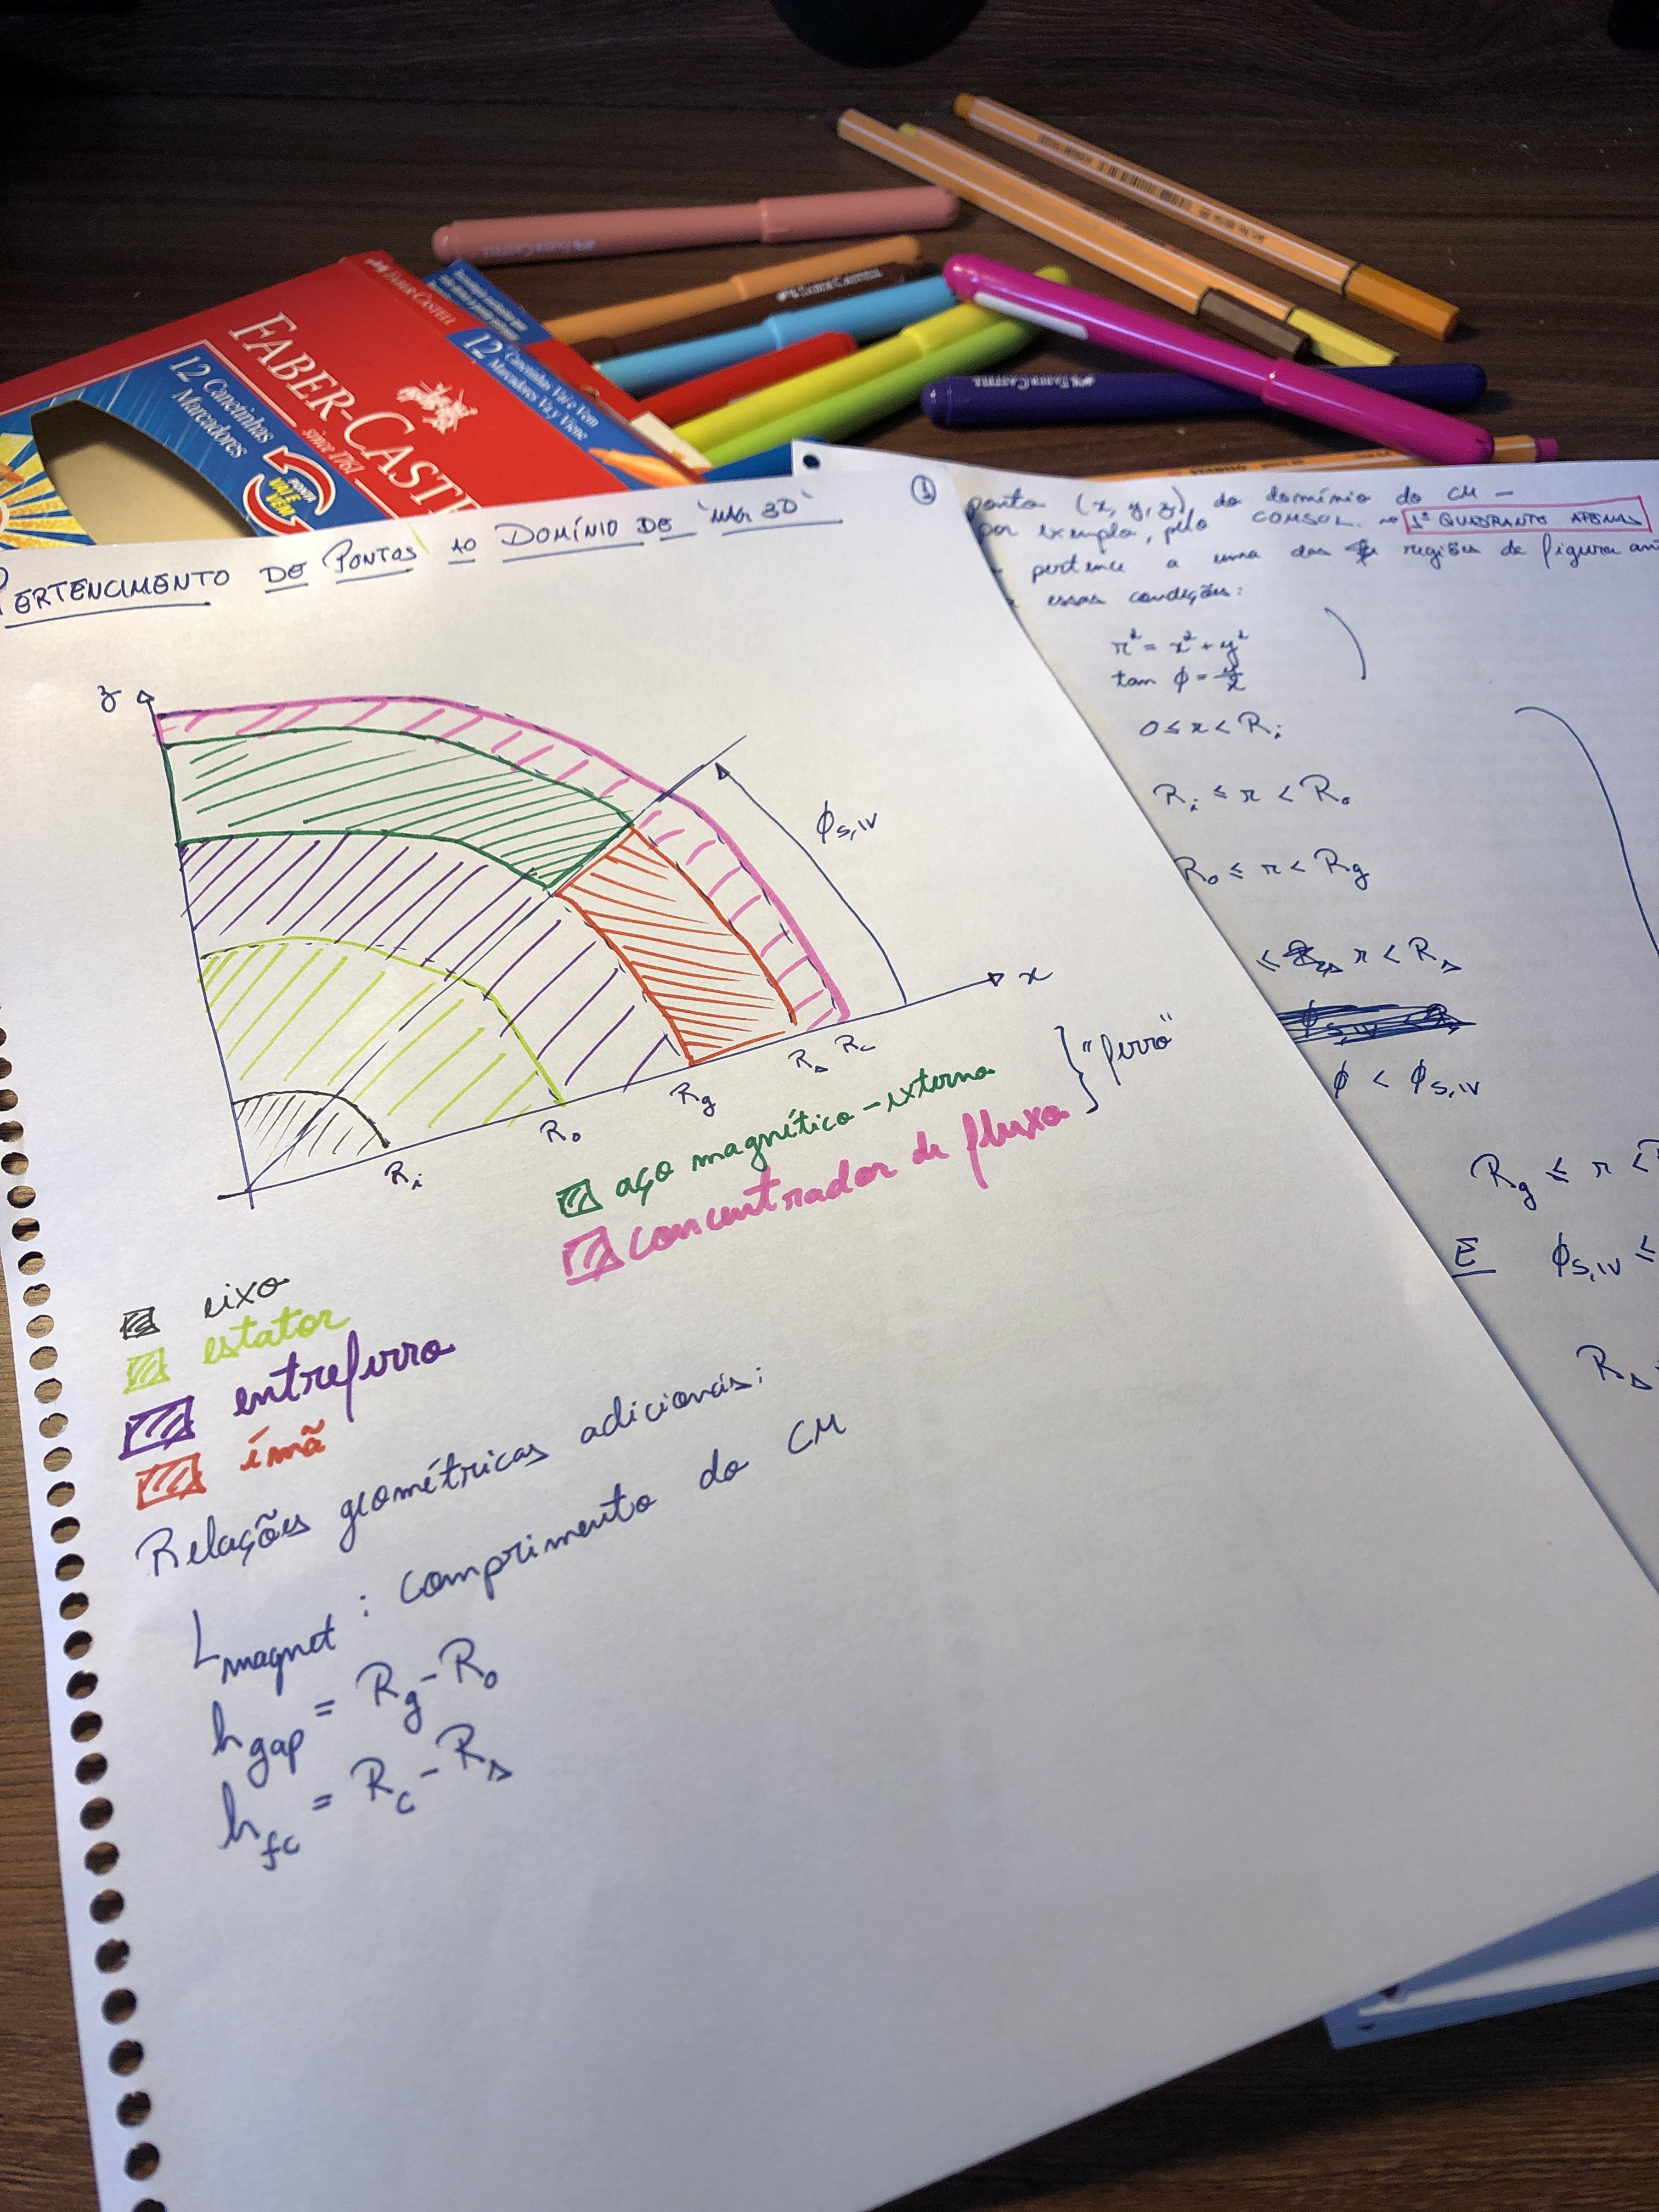 FABER-CASTELL
FABER-CASTELL
since 1761
12 Canetinhas Vai e Vem
Marcadores Va y Viene
12 Canetinhas
Marcadores
PONTA
VAI E
VEM
FABER-CASTELL
FABER-CASTELL
STABILO
PERTENCIMENTO DE PONTOS AO DOMÍNIO DE
①
z
ϕS,IV
x
Ri
Ro
Rg
Rs
Rc
aço magnético-externa
concentrador de fluxo
} "ferro"
eixo
estator
entreferro
ímã
Relações geométricas adicionais:
Lmagnet : comprimento do CM
hgap = Rg - Ro
hfc = Rc - Rs
ponto (x, y, z), do domínio do CM -
por exemplo, pelo COMSOL. no 1º QUADRANTE APENAS
pertence a uma das regiões de figura
essas condições:
r² = x² + y²
tan ϕ = y/x
0 ≤ r < Ri
Ri ≤ r < Ro
Ro ≤ r < Rg
≤ r < Rs
ϕ < ϕS,IV
Rg ≤ r <
E ϕS,IV ≤
Rs